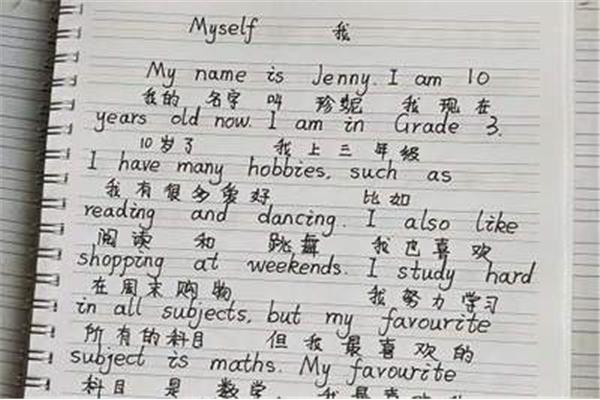 Myself 我
My name is Jenny. I am 10
我的 名字 叫 珍妮 我 现 在
years old now. I am in Grade 3.
10岁了 我上三年级
I have many hobbies, such as
我有很多爱好 比如
reading and dancing. I also like
阅读 和 跳舞 我也喜欢
shopping at weekends. I study hard
在周末购物 我努力学习
in all subjects, but my favourite
所有的科目 但我最喜欢的
subject is maths. My favourite
科目 是 数学. 我最喜欢